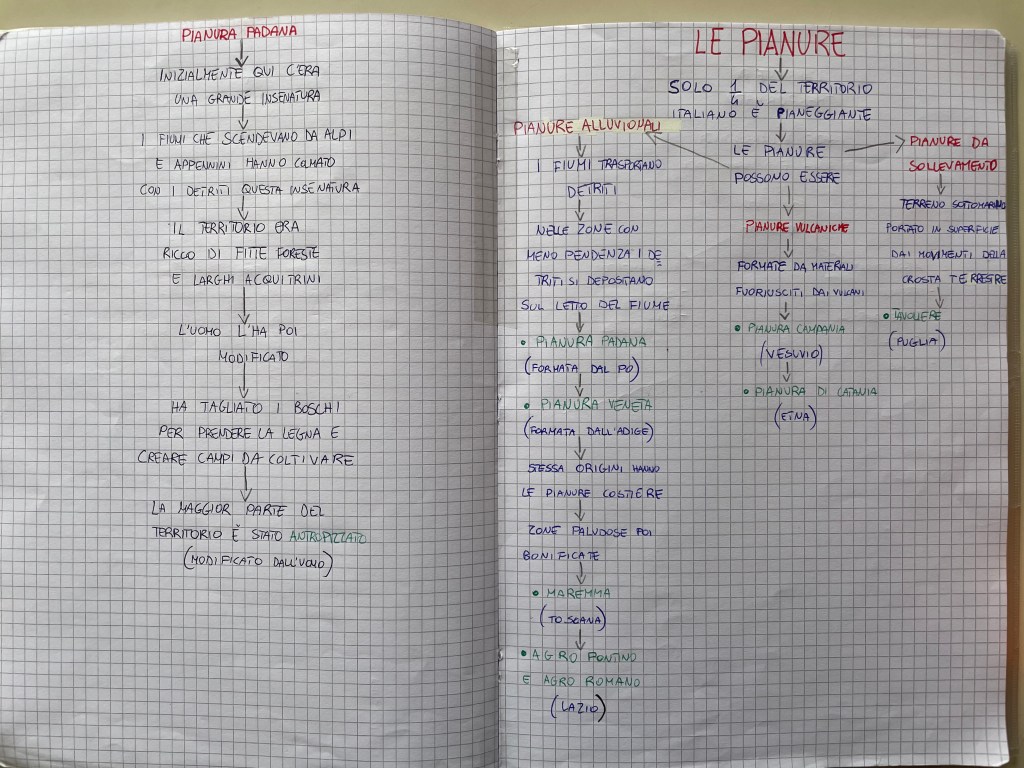 PIANURA PADANA
INIZIALMENTE QUI C'ERA
UNA GRANDE INSENATURA
I FIUMI CHE SCENDEVANO DA ALPI
E APPENNINI HANNO COLMATO
CON I DETRITI QUESTA INSENATURA
IL TERRITORIO ERA
RICCO DI FITTE FORESTE
E LARGHI ACQUITRINI
L'UOMO L'HA POI
MODIFICATO
HA TAGLIATO I BOSCHI
PER PRENDERE LA LEGNA E
CREARE CAMPI DA COLTIVARE
LA MAGGIOR PARTE DEL
TERRITORIO È STATO ANTROPIZZATO
(MODIFICATO DALL'UOMO)
LE PIANURE
SOLO 1/4 DEL TERRITORIO
ITALIANO È PIANEGGIANTE
LE PIANURE
POSSONO ESSERE
PIANURE ALLUVIONALI
I FIUMI TRASPORTANO
DETRITI
NELLE ZONE CON
MENO PENDENZA I DE
TRITI SI DEPOSITANO
SUL LETTO DEL FIUME
• PIANURA PADANA
(FORMATA DAL PO)
• PIANURA VENETA
(FORMATA DALL'ADIGE)
STESSA ORIGINI HANNO
LE PIANURE COSTIERE
ZONE PALUDOSE POI
BONIFICATE
• MAREMMA
(TOSCANA)
• AGRO PONTINO
E AGRO ROMANO
(LAZIO)
PIANURE VULCANICHE
FORMATE DA MATERIALI
FUORIUSCITI DAI VULCANI
• PIANURA CAMPANIA
(VESUVIO)
• PIANURA DI CATANIA
(ETNA)
PIANURE DA
SOLLEVAMENTO
TERRENO SOTTOMARINO
PORTATO IN SUPERFICIE
DAI MOVIMENTI DELLA
CROSTA TERRESTRE
• TAVOLIERE
(PUGLIA)